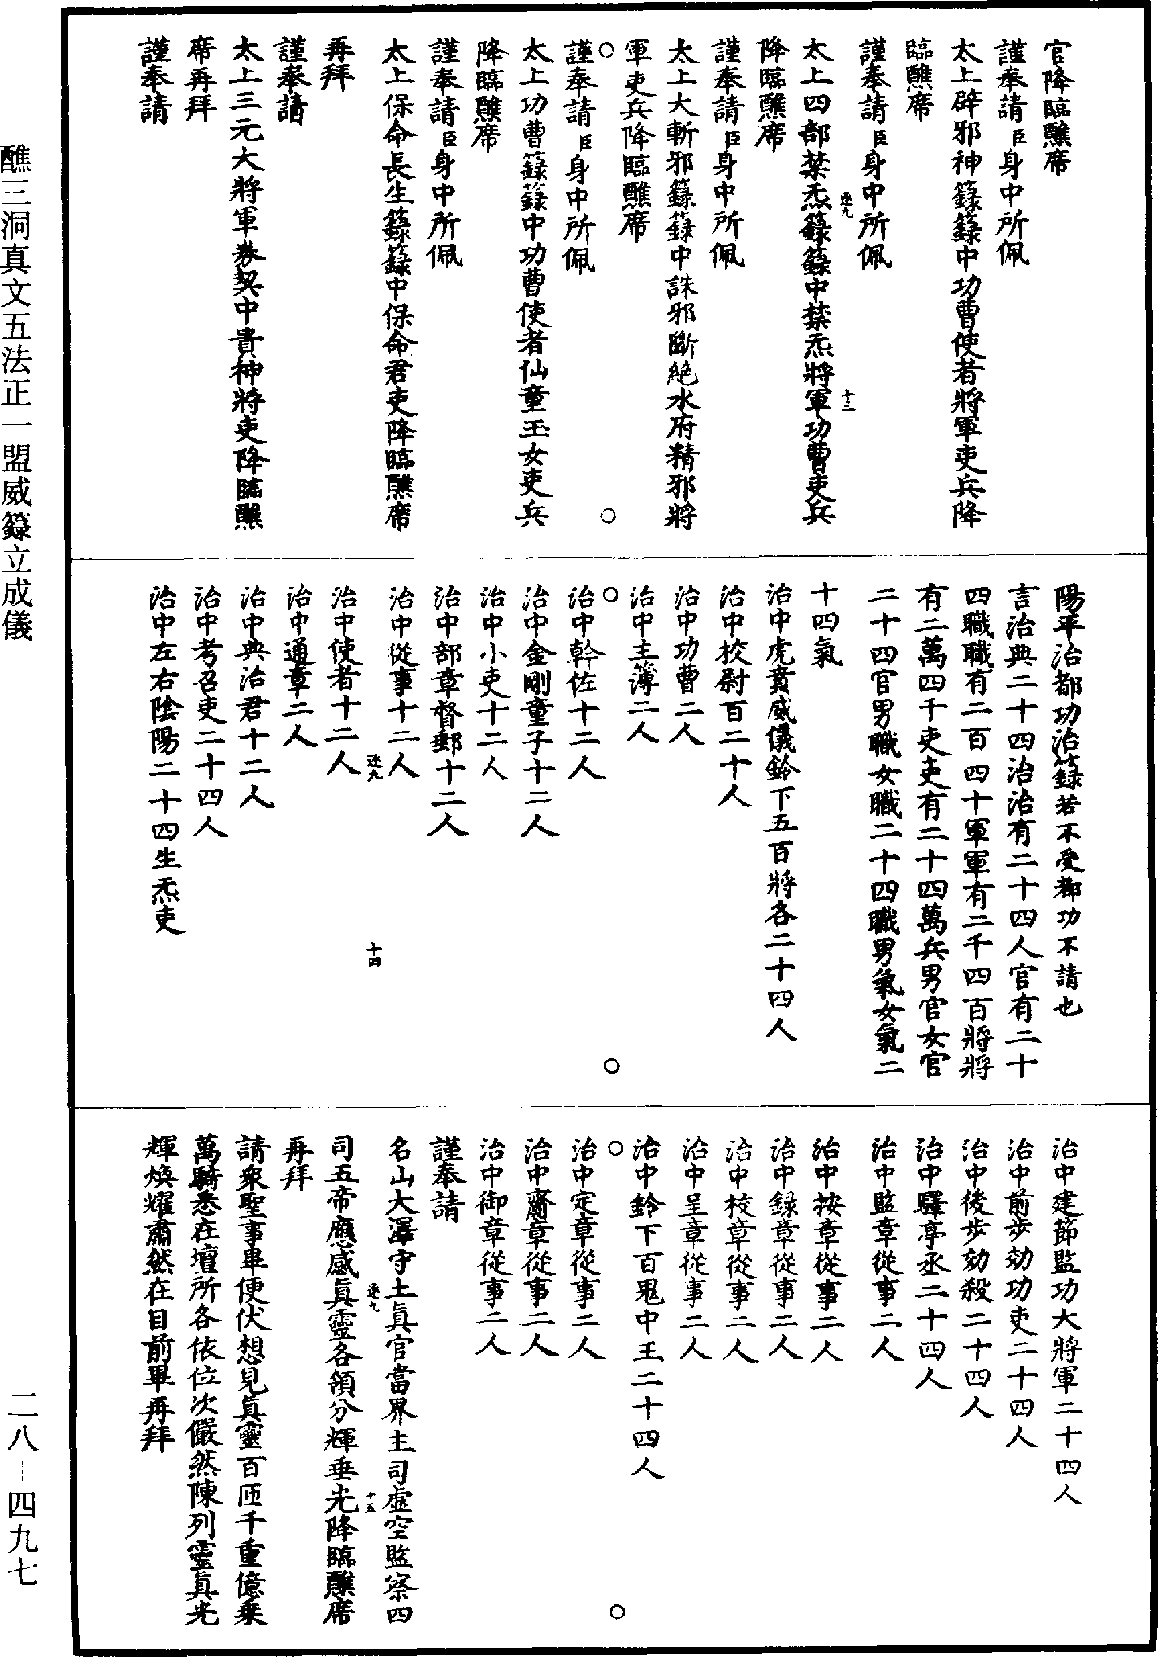 官降臨醮席
謹奉請臣身中所佩
太上辟邪神籙籙中功曹使者將軍吏兵降
臨醮席
謹奉請臣身中所佩
逐九
十三
太上四部禁炁籙籙中禁炁將軍功曹吏兵
降臨醮席
謹奉請臣身中所佩
太上大斬邪籙籙中誅邪斷絶水府精邪將
軍吏兵降臨醮席
謹奉請臣身中所佩
太上功曹籙籙中功曹使者仙童玉女吏兵
降臨醮席
謹奉請臣身中所佩
太上保命長生籙籙中保命君吏降臨醮席
再拜
謹奉請
太上三元大將軍券契中貴神將吏降臨醮
席再拜
謹奉請
陽平治都功治籙若不受都功不請也
言治典二十四治治有二十四人官有二十
四職職有二百四十軍軍有二千四百將將
有二萬四千吏吏有二十四萬兵男官女官
二十四官男職女職二十四職男氣女氣二
十四氣
治中虎賁威儀鈴下五百將各二十四人
治中校尉百二十人
治中功曹二人
治中主簿二人
治中幹佐十二人
治中金剛童子十二人
治中小吏十二人
治中部章督郵十二人
治中從事十二人
逐九
十四
治中使者十二人
治中通章二人
治中典治君十二人
治中考召吏二十四人
治中左右陰陽二十四生炁吏
治中建節監功大將軍二十四人
治中前步効功吏二十四人
治中後步効殺二十四人
治中驛亭丞二十四人
治中監章從事二人
治中按章從事二人
治中録章從事二人
治中校章從事二人
治中呈章從事二人
治中鈴下百鬼中王二十四人
治中定章從事二人
治中齎章從事二人
治中御章從事二人
謹奉請
名山大澤守土眞官當界主司虛空監察四
逐九
十五
司五帝應感眞靈各領分輝垂光降臨醮席
再拜
請衆聖事畢便伏想見眞靈百匝千重億乗
萬騎悉在壇所各依位次儼然陳列靈眞光
輝煥耀肅然在目前畢再拜
醮三洞真文五法正一盟威籙立成儀
二八—四九七